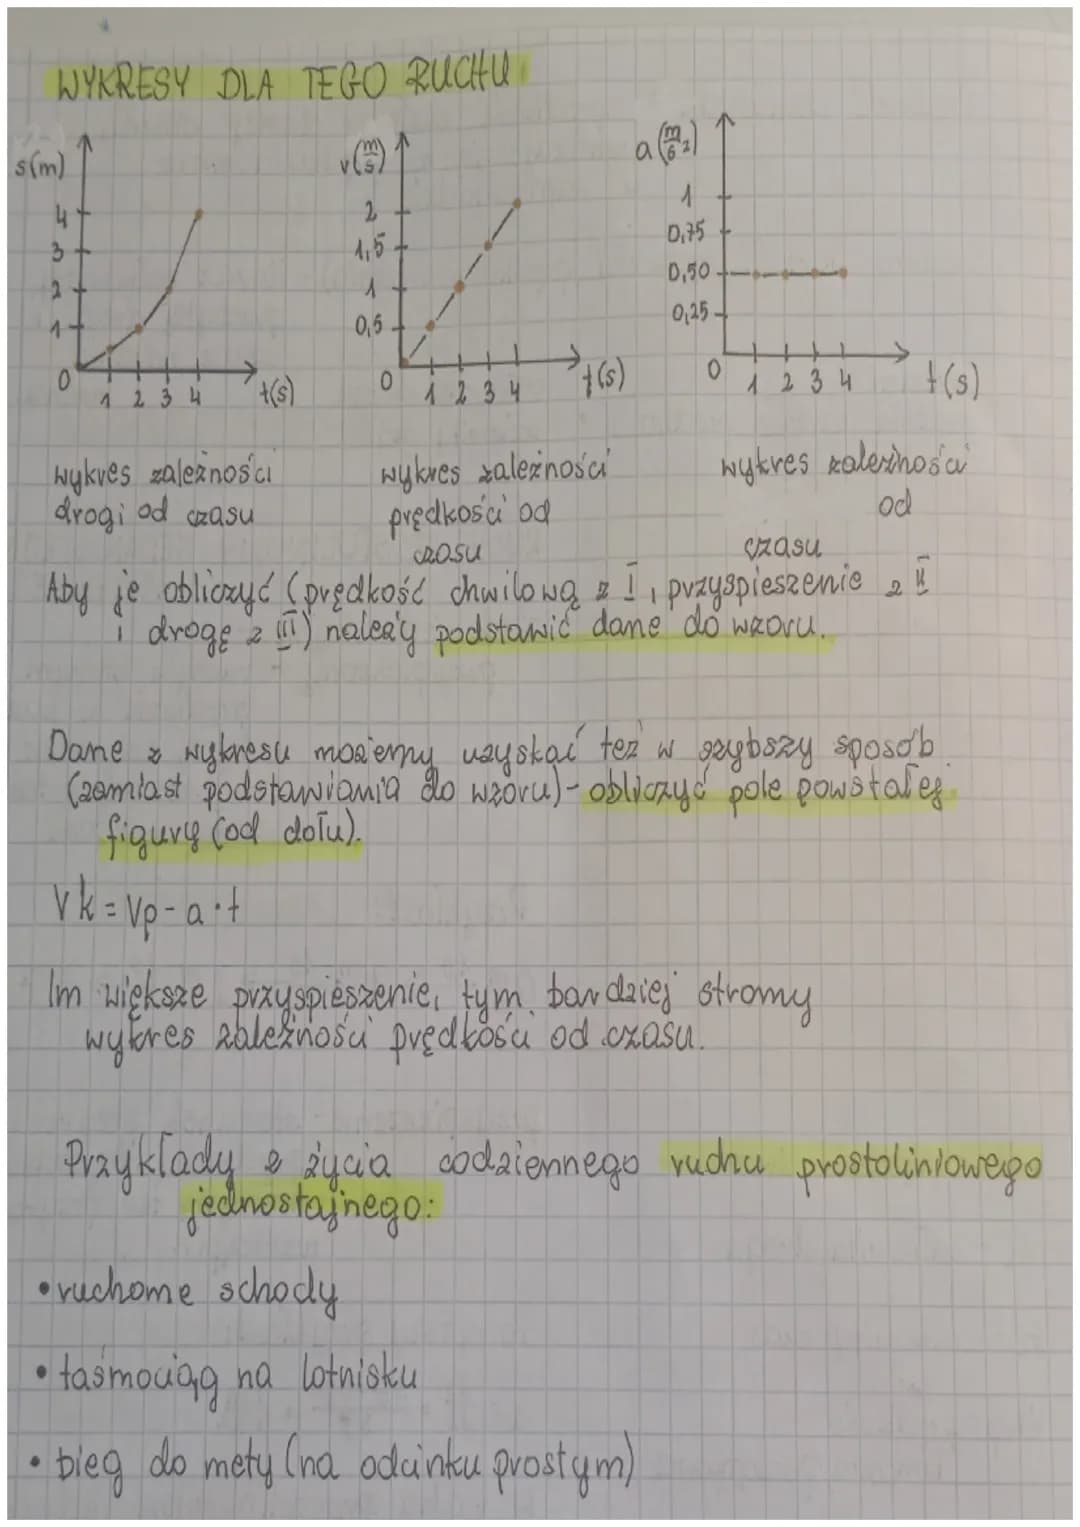 WYKRESY DLA TEGO RUCHU
s(m)
4
3
2
1
0
1 2 3 4
t(s)
v(m/s)
2
1,5
1
0,5
0
1 2 3 4
t(s)
a(m/s²)
1
0,75
0,50
0,25
0
1 2 3 4
t(s)
wykres zależności
drogi od czasu
wykres zależności
prędkości od
czasu
wykres zależności
od
czasu
Aby je obliczyć (prędkość chwilową z I, przyspieszenie z II
i drogę z III) należy podstawić dane do wzoru.
Dane z wykresu możemy uzyskać też w szybszy sposób
(zamiast podstawiania do wzoru) - obliczyć pole powstałej
figury (od dołu).
Vk = Vp - a · t
Im większe przyspieszenie, tym bardziej stromy
wykres zależności prędkości od czasu.
Przykłady z życia codziennego ruchu prostoliniowego
jednostajnego:
• ruchome schody
• taśmociąg na lotnisku
• bieg do mety (na odcinku prostym)